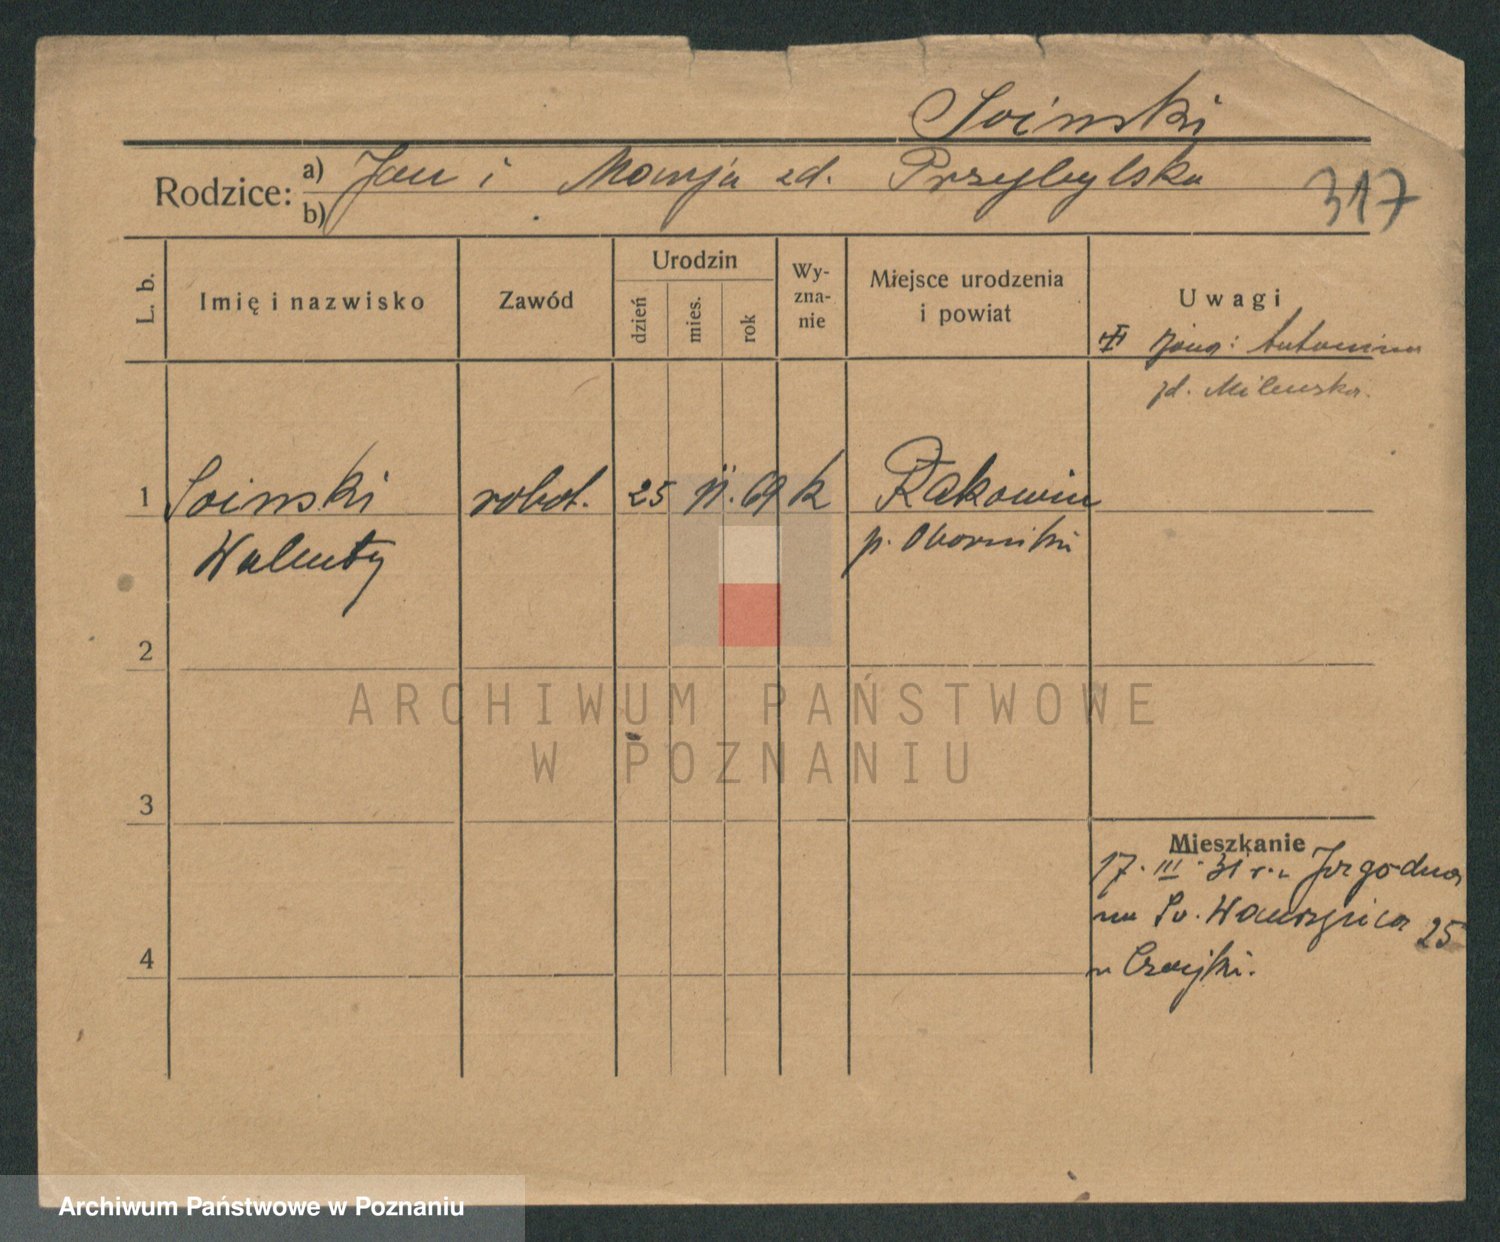 Soinski
Rodzice: a) Jan i Marja zd. Przybylska
b)
317
L. b.
Imię i nazwisko
Zawód
Urodzin
dzień
mies.
rok
Wy-
zna-
nie
Miejsce urodzenia
i powiat
Uwagi
Antonina
zd. Milewska.
1 Soinski robot. 25 II. 69 k Rakowin
Walenty p. Oborniki
2
ARCHIWUM PAŃSTWOWE
W POZNANIU
3
Mieszkanie
17. III. 31 r.
Św. Wawrzyńca 25
4
Archiwum Państwowe w Poznaniu